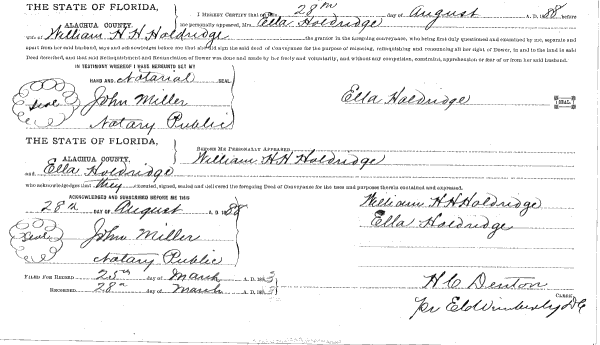 THE STATE OF FLORIDA,
ALACHUA COUNTY.
I HEREBY CERTIFY that on this 28th day of August A. D. 1888 before
me personally appeared, Mrs. Ella Holdridge
wife of William H H Holdridge the grantor in the foregoing conveyance, who being first duly questioned and examined by me, separate and
apart from her said husband, says and acknowledges before me that she did sign the said deed of Conveyance for the purpose of releasing, relinquishing and renouncing all her right of Dower, in and to the land in said
Deed described, and that said Relinquishment and Renunciation of Dower was done and made by her freely and voluntarily, and without any compulsion, constraint, apprehension or fear of or from her said husband.
IN TESTIMONY WHEREOF I HAVE HEREUNTO SET MY
HAND AND Notarial SEAL
Seal John Miller Ella Holdridge SEAL
Notary Public
THE STATE OF FLORIDA,
ALACHUA COUNTY.
BEFORE ME PERSONALLY APPEARED William H H Holdridge
and Ella Holdridge
who acknowledges that they executed, signed, sealed and delivered the foregoing Deed of Conveyance for the uses and purposes therein contained and expressed.
ACKNOWLEDGED AND SUBSCRIBED BEFORE ME THIS
28th DAY OF August A. D. 1888
William H H Holdridge
Ella Holdridge
Seal John Miller
Notary Public
FILED FOR RECORD 25th day of March A. D. 1893
RECORDED 28th day of March A. D. 1893
H C Denton
CLERK.
pr E d Wimberly D C